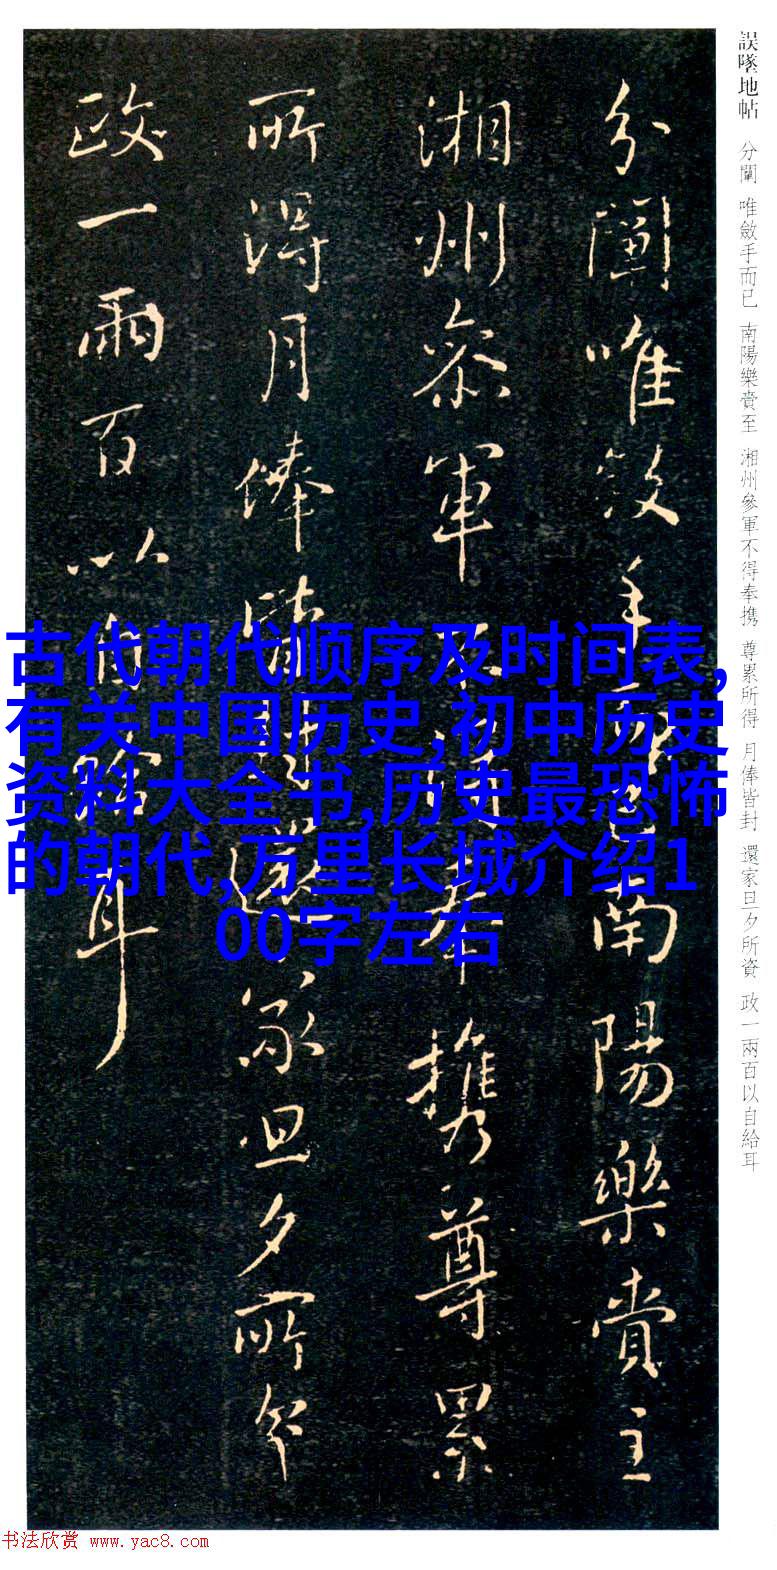 誤墜地帖 分闡 唯斂手而已 南陽樂賁至 湘州參軍不得奉携 尊累所得 月俸皆封 還家旦夕所資 政一兩百以自給耳
分闡唯斂手而已南陽樂賁至
湘州參軍不得奉携尊累
所得月俸皆封還家旦夕所資
政一兩百以自給耳
古代朝代顺序及时间表,
有关中国历史,初中历史
资料大全书,历史最恐怖
的朝代,万里长城介绍1
00字左右
书法欣赏 www.yac8.com